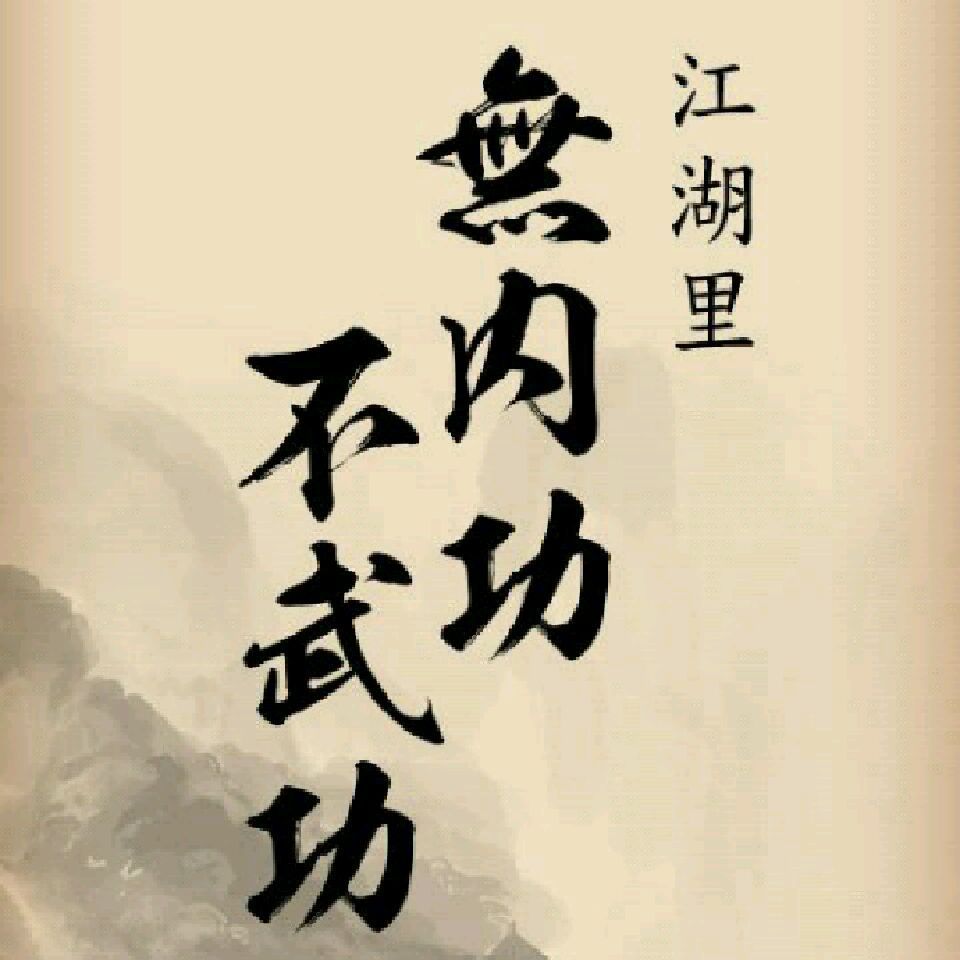 江湖里
無内功
不武功